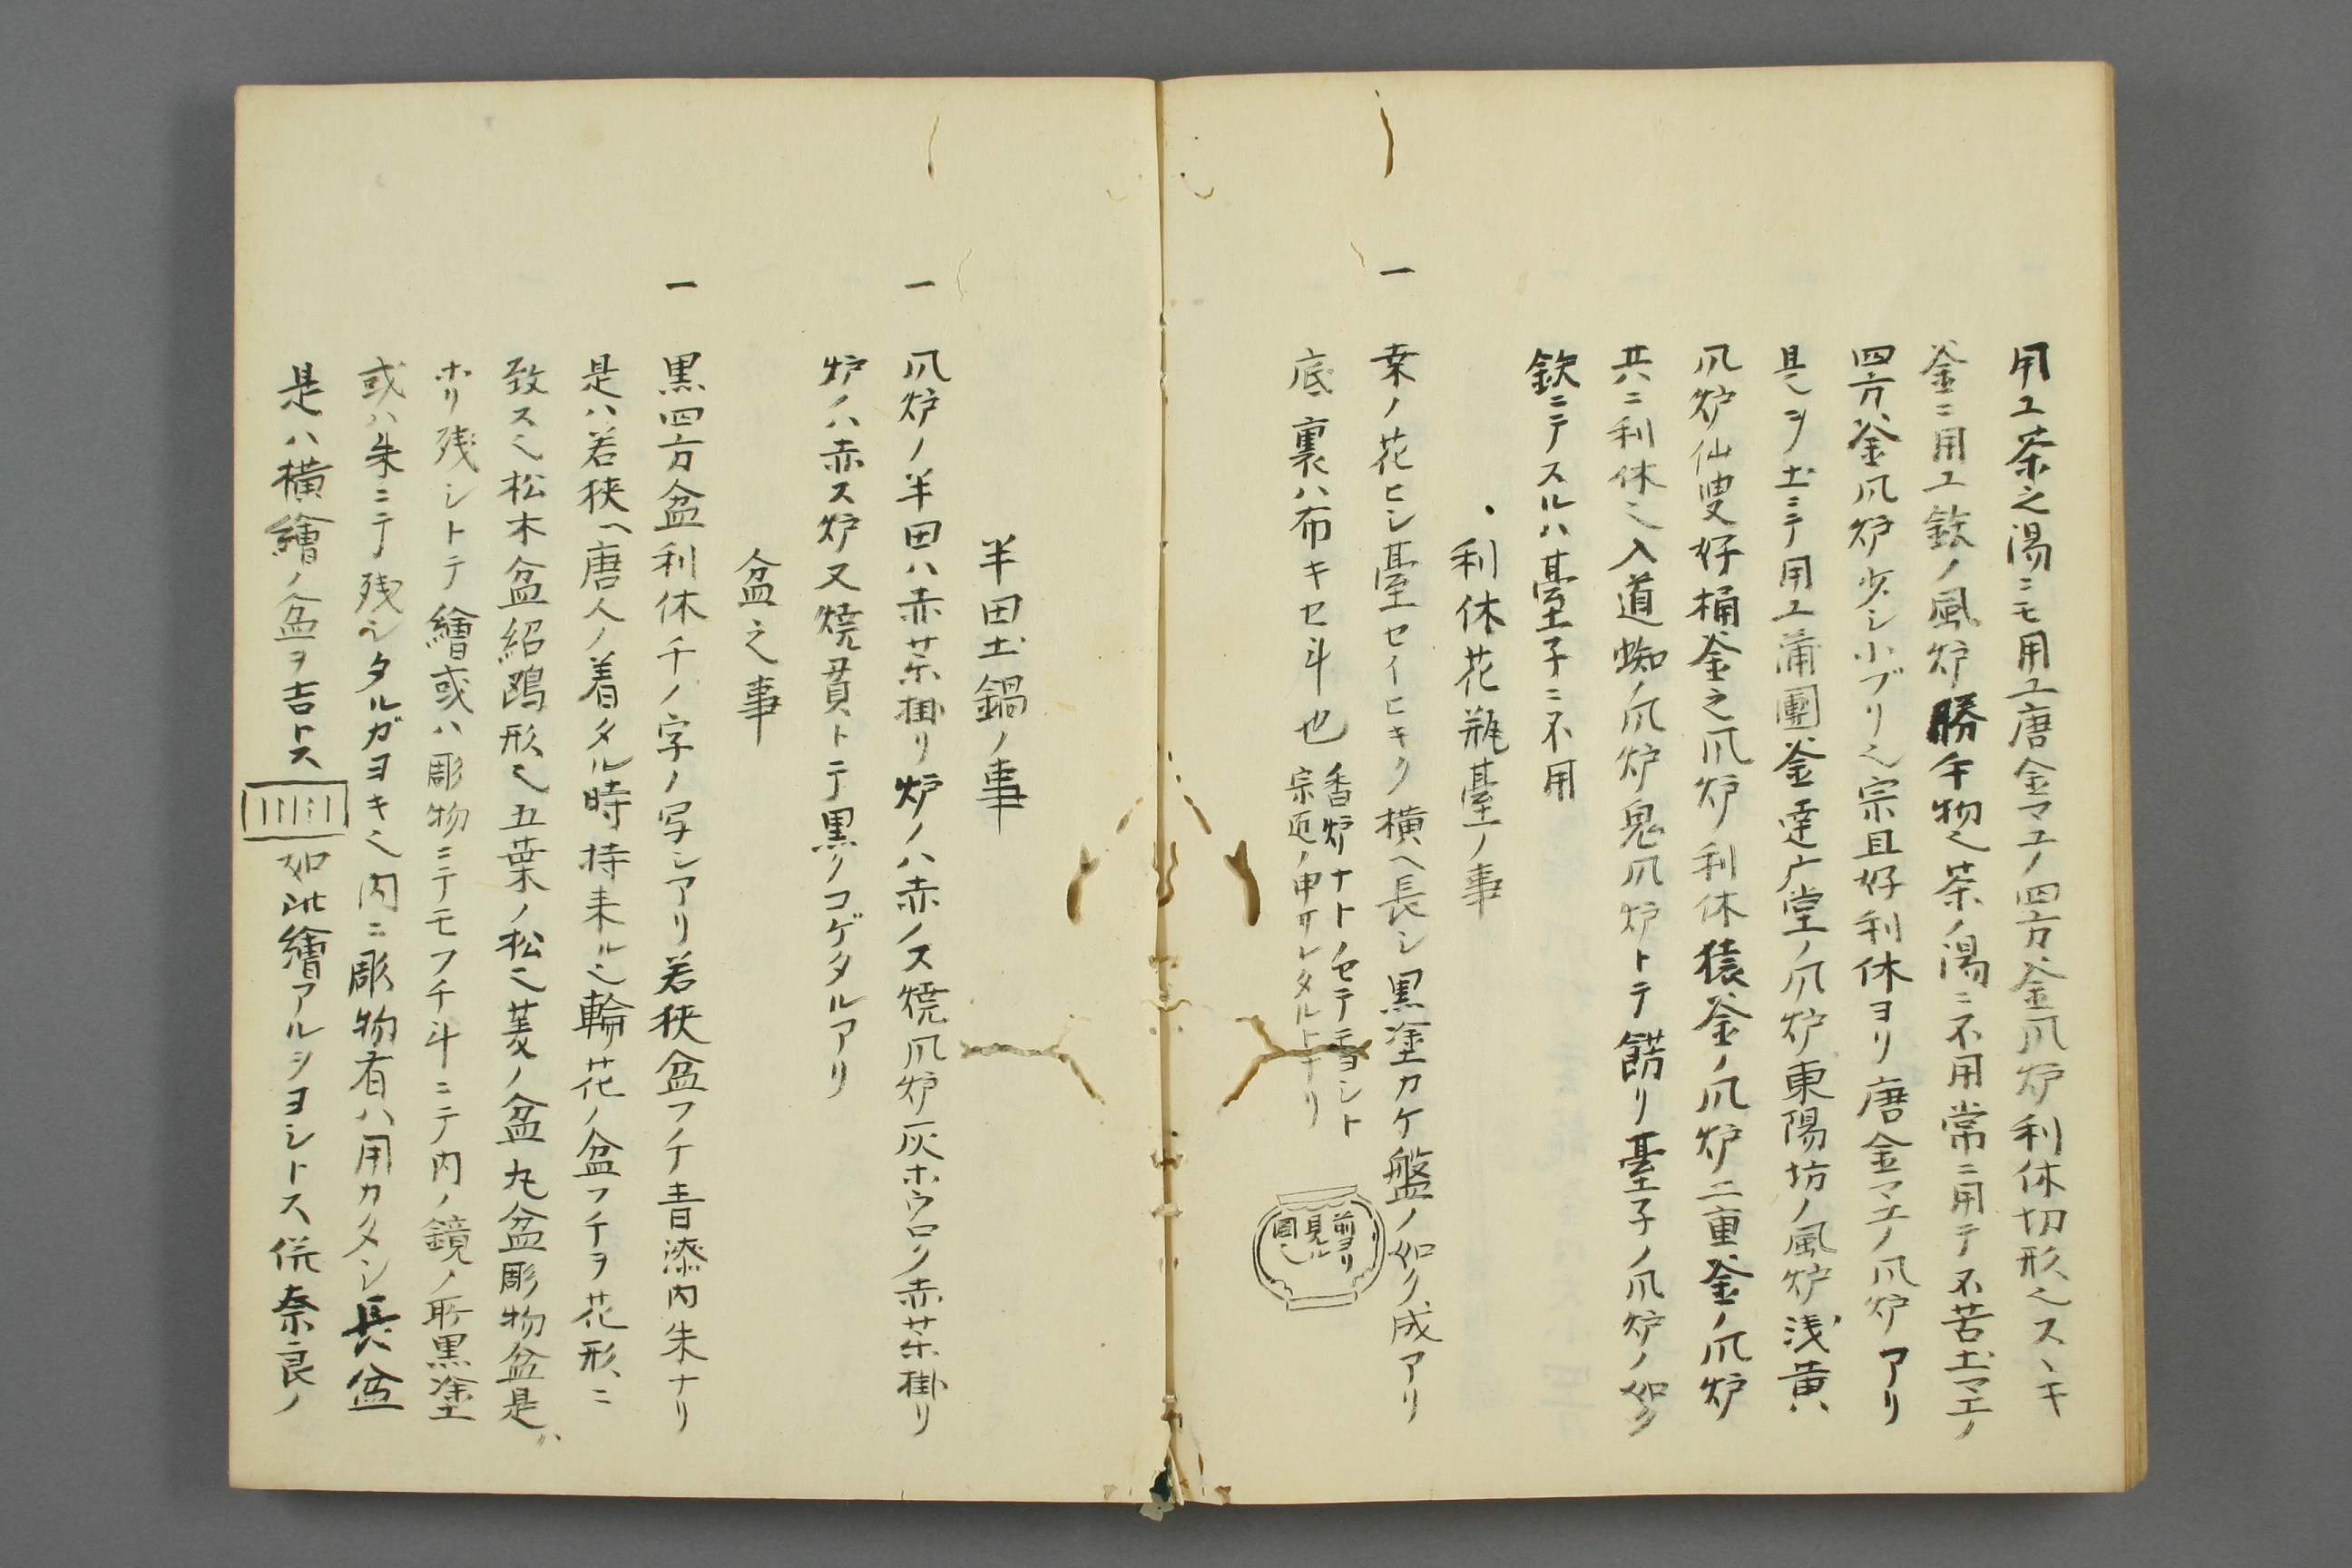 用ユ茶之湯ニモ用ユ唐金マユノ四方釜爪炉利休切形也スヽキ
釜ニ用ユ鉄ノ風炉勝手物也茶ノ湯ニ不用常ニ用テ不苦土マエノ
四方釜爪炉少シ小ブリ也宗旦好利休ヨリ唐金マエノ爪炉アリ
是ヲ土ニテ用ユ蒲團釜達广堂ノ爪炉東陽坊ノ風炉浅黄ハ
爪炉仙叟好桶釜之爪炉利休猿釜ノ爪炉二重釜ノ爪炉
共ニ利休也入道蜘ノ爪炉鬼爪炉トテ餝リ臺子ノ爪炉ノ如ク
鉄ニテスルハ臺子ニ不用
・利休花瓶臺ノ事
一 桒ノ花ヒシ臺セイヒキク横ヘ長シ黒塗カケ盤ノ如ク成アリ
底裏ハ布キセ斗也 香炉ナトノセテモヨシト
宗匠ノ申サレタルト也
前ヨリ
見ル
圖也
半田土鍋ノ事
一 爪炉ノ半田ハ赤茶掛リ炉ノハ赤ノス焼爪炉灰ホウロク赤茶掛リ
炉ノハ赤ス炉又焼貫トテ黒クコゲタルアリ
盆之事
一 黒四方盆利休千ノ字ノ写シアリ若狭盆フチ青漆内朱ナリ
是ハ若狭ヘ唐人ノ着タル時持来ル也輪花ノ盆フチヲ花形ニ
致ス也松木盆紹鴎形也五葉ノ松也菱ノ盆丸盆彫物盆是ハ
ホリ残シトテ繪或ハ彫物ニテモフチ斗ニテ内ノ鏡ノ所黒塗
或ハ朱ニテ残シタルガヨキ也内ニ彫物有ハ用カタシ長盆
是ハ横繪ノ盆ヲ吉トス 如此繪アルヲヨシトス併奈良ノ